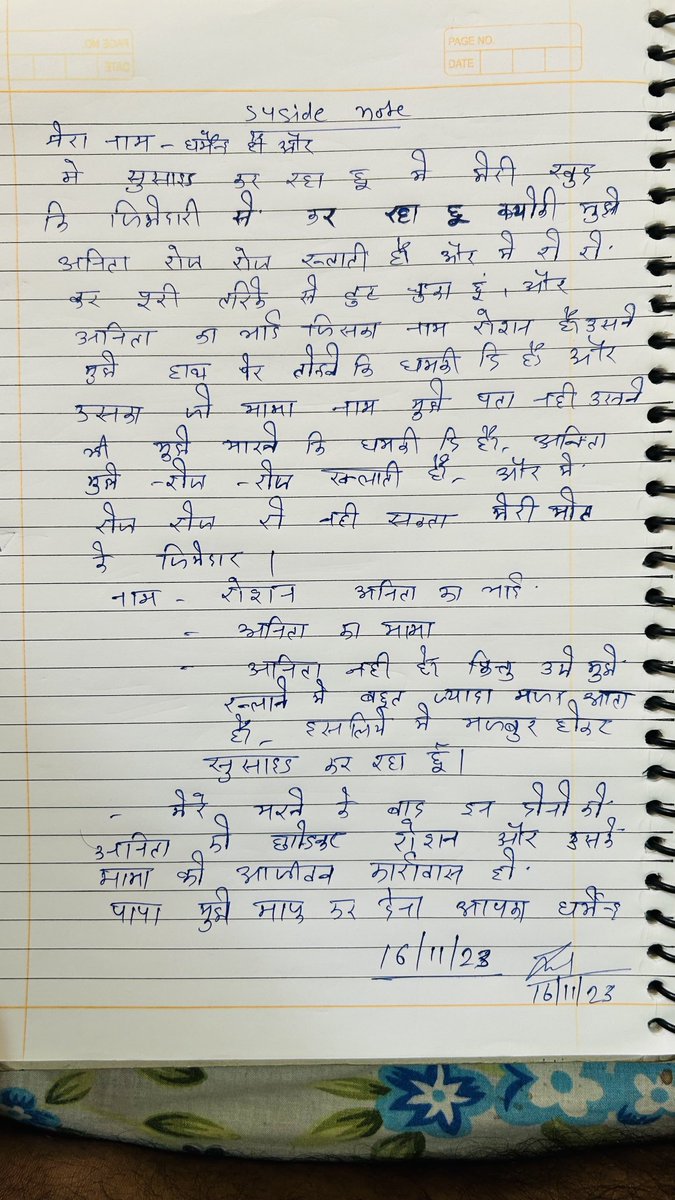 PAGE NO.
DATE
suside note
मेरा नाम - धर्मेन्द्र है और
मे सुसाइड कर रहा हू मे मेरी खुद
कि जिमेदारी से कर रहा हू क्योकी मुझे
अनिता रोज रोज रूलाती है और मे रो रो
कर बुरी तरिके से टुट चुका हूं, और
अनिता का भाई जिसका नाम रोशन है उसने
मुझे हाथ पेर तोडने कि धमकी दि है और
उसका जो मामा नाम मुझे पता नही उसने
भी मुझे मारने कि धमकी दि है, अनिता
मुझे -रोज -रोज रूलाती है, और मे
रोज रोज रो नही सकता मेरी मोत
के जिमेदार ।
नाम - रोशन अनिता का भाई
- अनिता का मामा
- अनिता नही है किन्तु उसे मुझे
रूलाने मे बहुत ज्यादा मजा आता
है, इसलिये मे मजबुर होकर
सुसाइड कर रहा हूँ।
- मेरे मरने के बाद इन दोनो को
अनिता को छोडकर रोशन और उसके
मामा को आजीवन कारावास हो
पापा मुझे माफ कर देना आपका धर्मेन्द्र
16/11/23
16/11/23